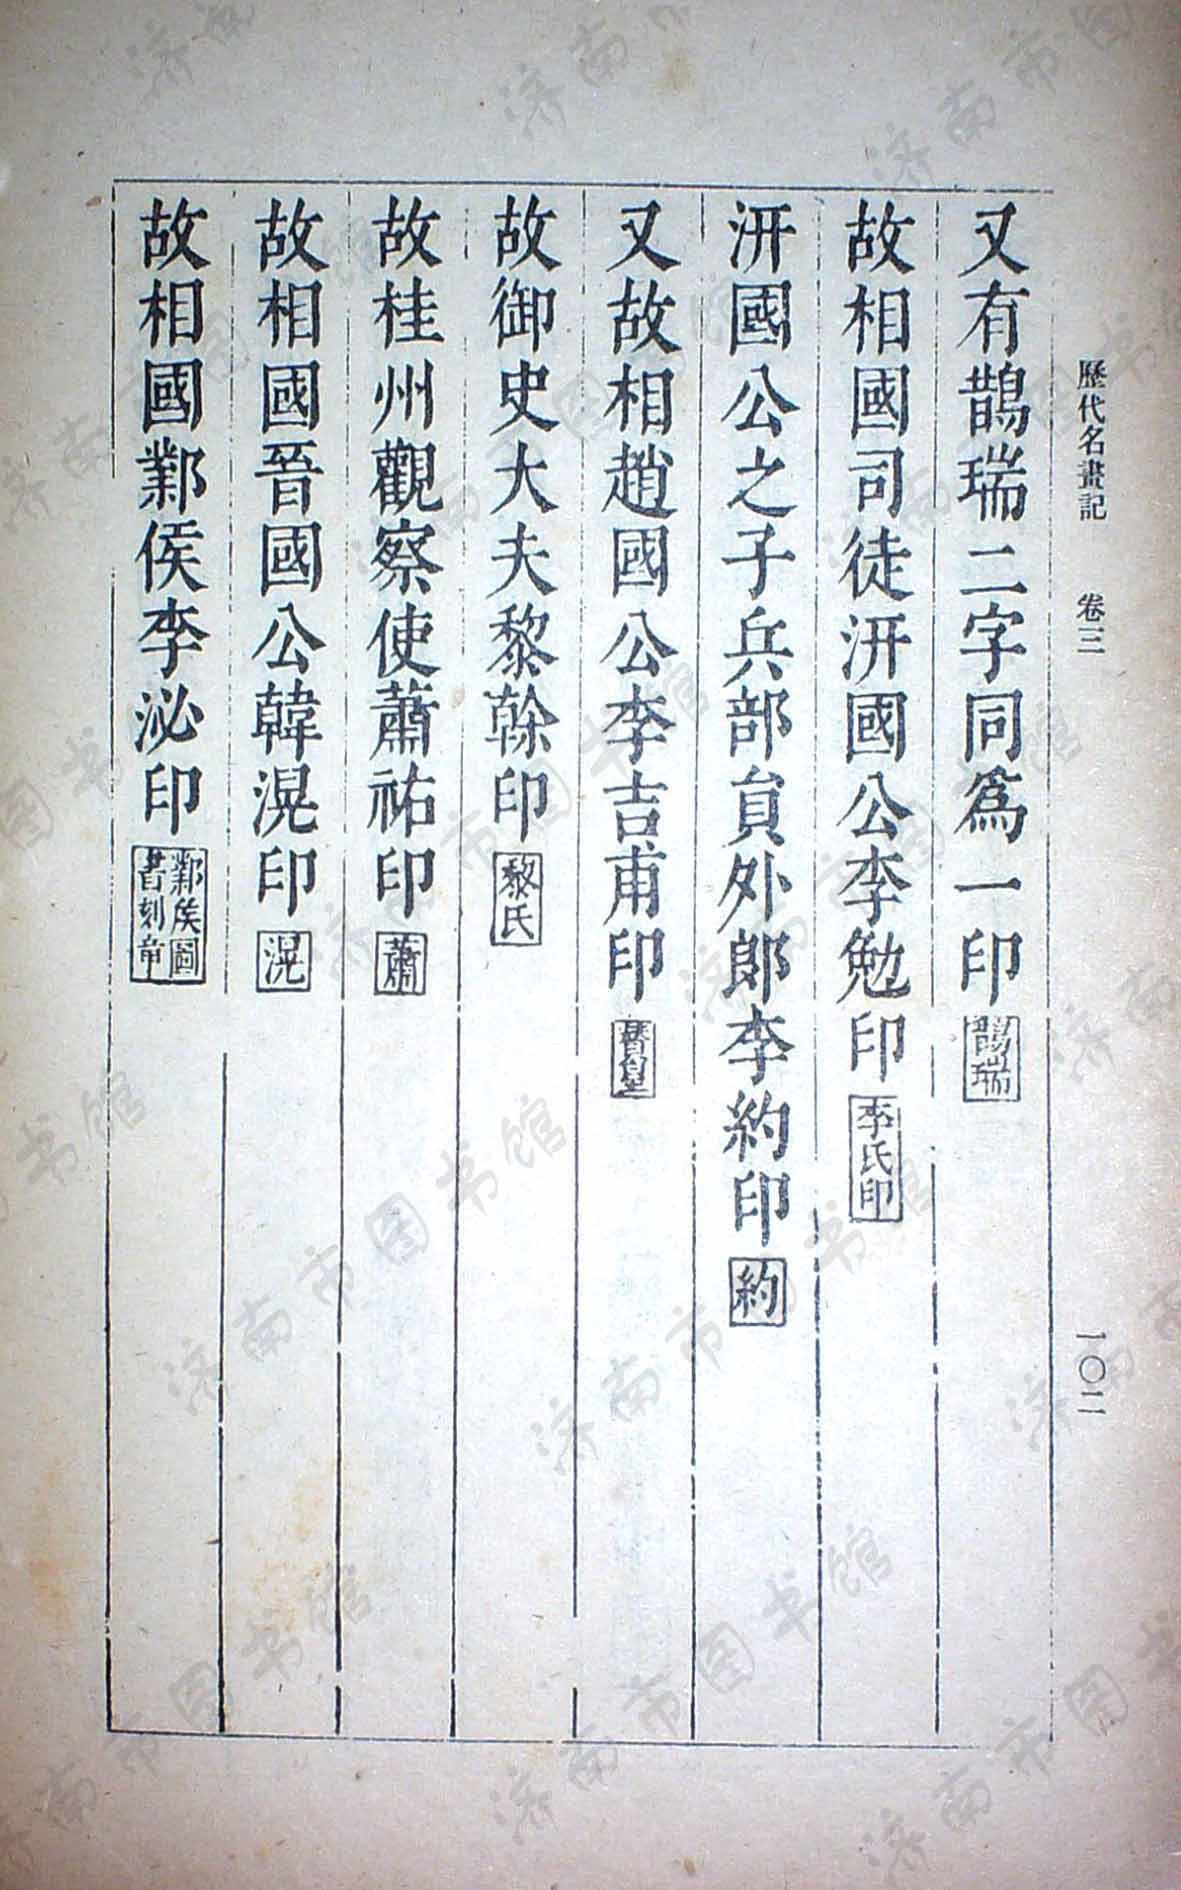 歷代名畫記 卷三 一〇二
又有鵲瑞二字同爲一印 鵲瑞
故相國司徒汧國公李勉印 李氏印
汧國公之子兵部員外郎李約印 約
又故相趙國公李吉甫印 贊皇
故御史大夫黎幹印 黎氏
故桂州觀察使蕭祐印 蕭
故相國晉國公韓滉印 滉
故相國鄴侯李泌印 鄴侯圖書刻章
济南市图书馆